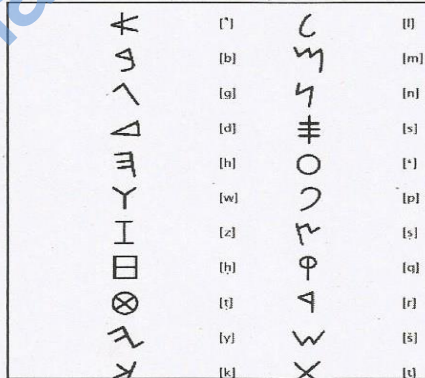 𐤀 [ʾ] 𐤋 [l]
𐤁 [b] 𐤌 [m]
𐤂 [g] 𐤍 [n]
𐤃 [d] 𐤎 [s]
𐤄 [h] 𐤏 [ʿ]
𐤅 [w] 𐤐 [p]
𐤆 [z] 𐤑 [ṣ]
𐤇 [ḥ] 𐤒 [q]
𐤈 [ṭ] 𐤓 [r]
𐤉 [y] 𐤔 [š]
𐤊 [k] 𐤕 [t]